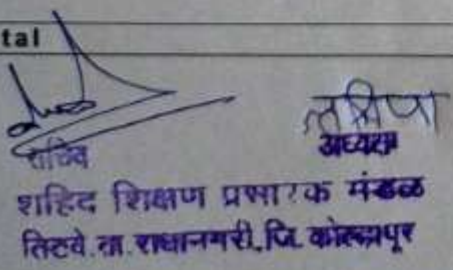 tal
सचिव अध्यक्ष
शहिद शिक्षण प्रसारक मंडळ
तिटवे. ता. राधानगरी, जि. कोल्हापूर